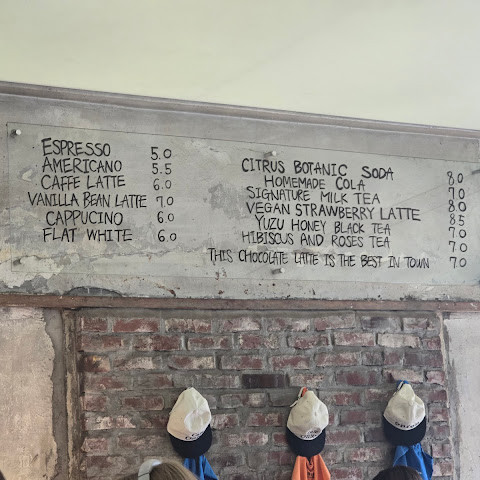 ESPRESSO 5.0
AMERICANO 5.5
CAFFE LATTE 6.0
VANILLA BEAN LATTE 7.0
CAPPUCINO 6.0
FLAT WHITE 6.0
CITRUS BOTANIC SODA 8.0
HOMEMADE COLA 7.0
SIGNATURE MILK TEA 8.0
VEGAN STRAWBERRY LATTE 8.5
YUZU HONEY BLACK TEA 7.0
HIBISCUS AND ROSES TEA 7.0
THIS CHOCOLATE LATTE IS THE BEST IN TOWN 7.0